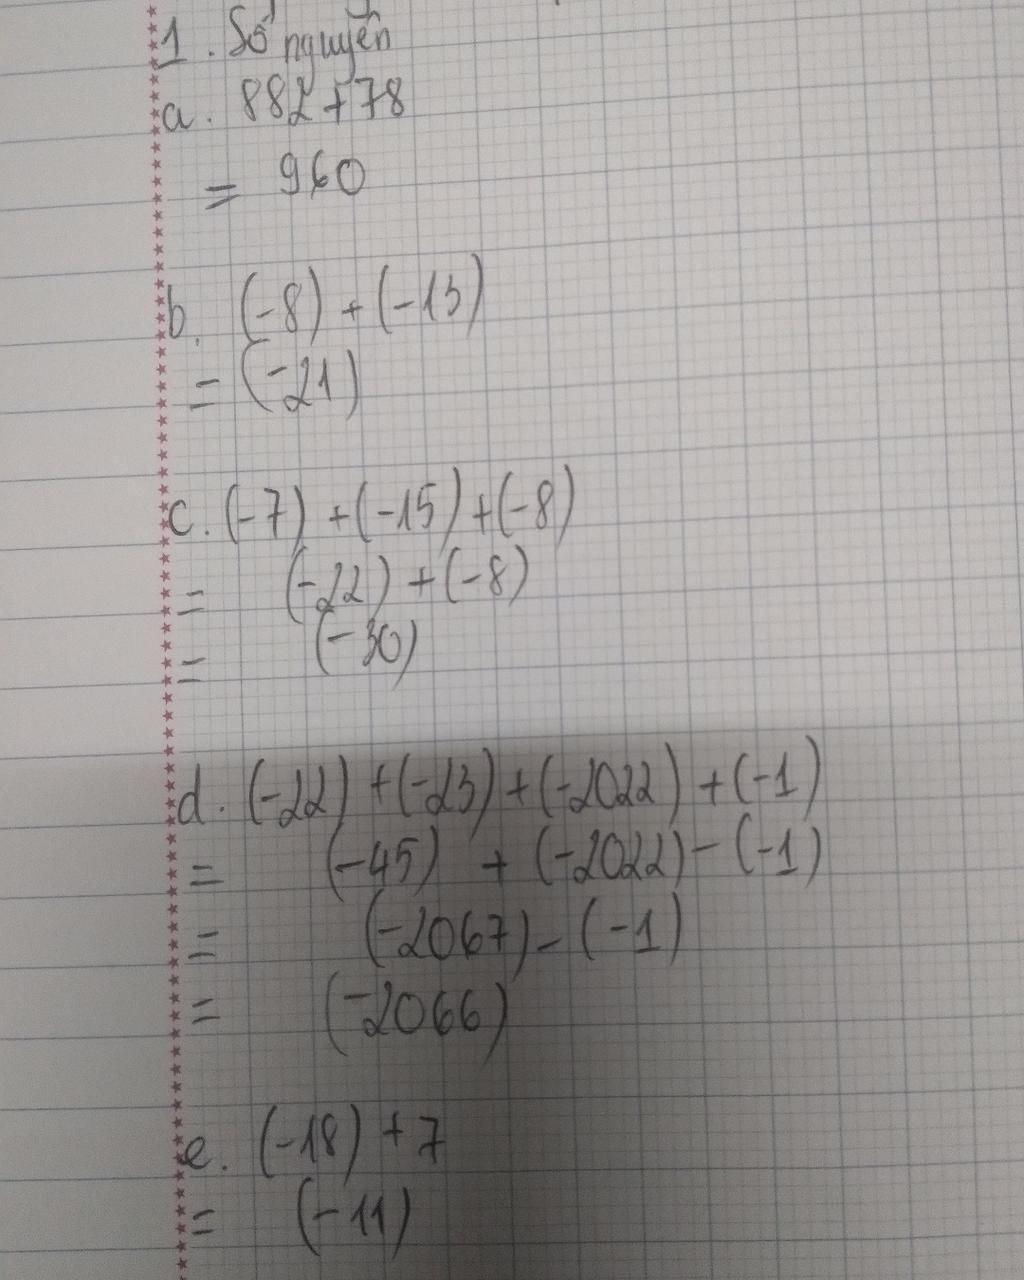 1. Số nguyên
a. 882 + 78
= 960
b. (-8) + (-13)
= (-21)
c. (-7) + (-15) + (-8)
= (-22) + (-8)
= (-30)
d. (-22) + (-23) + (-2022) + (-1)
= (-45) + (-2022) - (-1)
= (-2067) - (-1)
= (-2066)
e. (-18) + 7
= (-11)